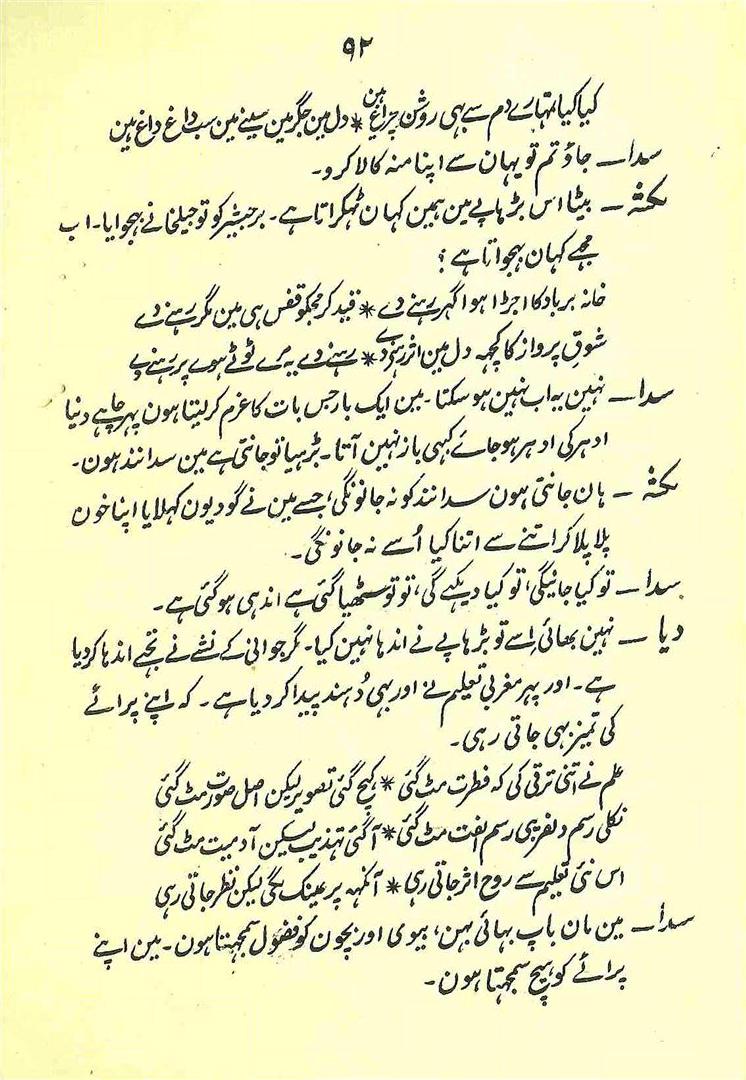 ۹۲
کیا کیا تمہارے دم سے یہی روشن چراغ ہین * دل مین جگر مین سینے مین سب داغ داغ ہین
سدا ــ جاؤ تم تو یہان سے اپنا منہ کالا کرو۔
مکشہ ــ بیٹا اس بڑہاپے مین ہمین کہان ٹھکراتا ہے۔ برجیشر کو تو جیلخانے بہجوایا۔ اب
مجھے کہان بہجواتا ہے ؟
خانہ برباد کا اجڑا ہوا گہر رہنے دے * قید کر مجکو قفس ہی مین مگر رہنے دے
شوقِ پرواز کا کچہہ دل مین اثر رہنے دے * رہنے دے یہ مرے ٹوٹے ہوے پر رہنے دے
سدا ــ نہین یہ اب نہین ہو سکتا۔ مین ایک بار جس بات کا عزم کر لیتا ہون پہر چاہے دنیا
ادہر کی ادہر ہو جائے کبہی باز نہین آتا۔ بڑہیا تو جانتی ہے مین سدانند ہون۔
مکشہ ــ ہان جانتی ہون سدانند کو نہ جانونگی، جسے مین نے گودیون کہلایا اپنا خون
پلا پلا کر اتنے سے اتنا کیا اُسے نہ جانونگی۔
سدا ــ تو کیا جانیگی، تو کیا دیکہے گی، تو تو سٹھیا گئی ہے اندہی ہو گئی ہے۔
دیا ــ نہین بھائی اِسے تو بڑہاپے نے اندہا نہین کیا۔ مگر جوانی کے نشے نے تجھے اندہا کر دیا
ہے۔ اور پہر مغربی تعلیم نے اور بہی دُہند پیدا کر دیا ہے۔ کہ اپنے پرائے
کی تمیز بہی جاتی رہی۔
علم نے اتنی ترقی کی کہ فطرت مٹ گئی * کہچ گئی تصویر لیکن اصل صورت مٹ گئی
نکلی رسم دلفریبی رسم الفت مٹ گئی * آ گئی تہذیب لیکن آدمیت مٹ گئی
اس نئی تعلیم سے روح اثر جاتی رہی * آنکہہ پر عینک لگی لیکن نظر جاتی رہی
سدا ــ مین مان باپ بہائی بہن، بیوی اور بچون کو فضول سمجہتا ہون۔ مین اپنے
پرائے کو ہیچ سمجہتا ہون۔